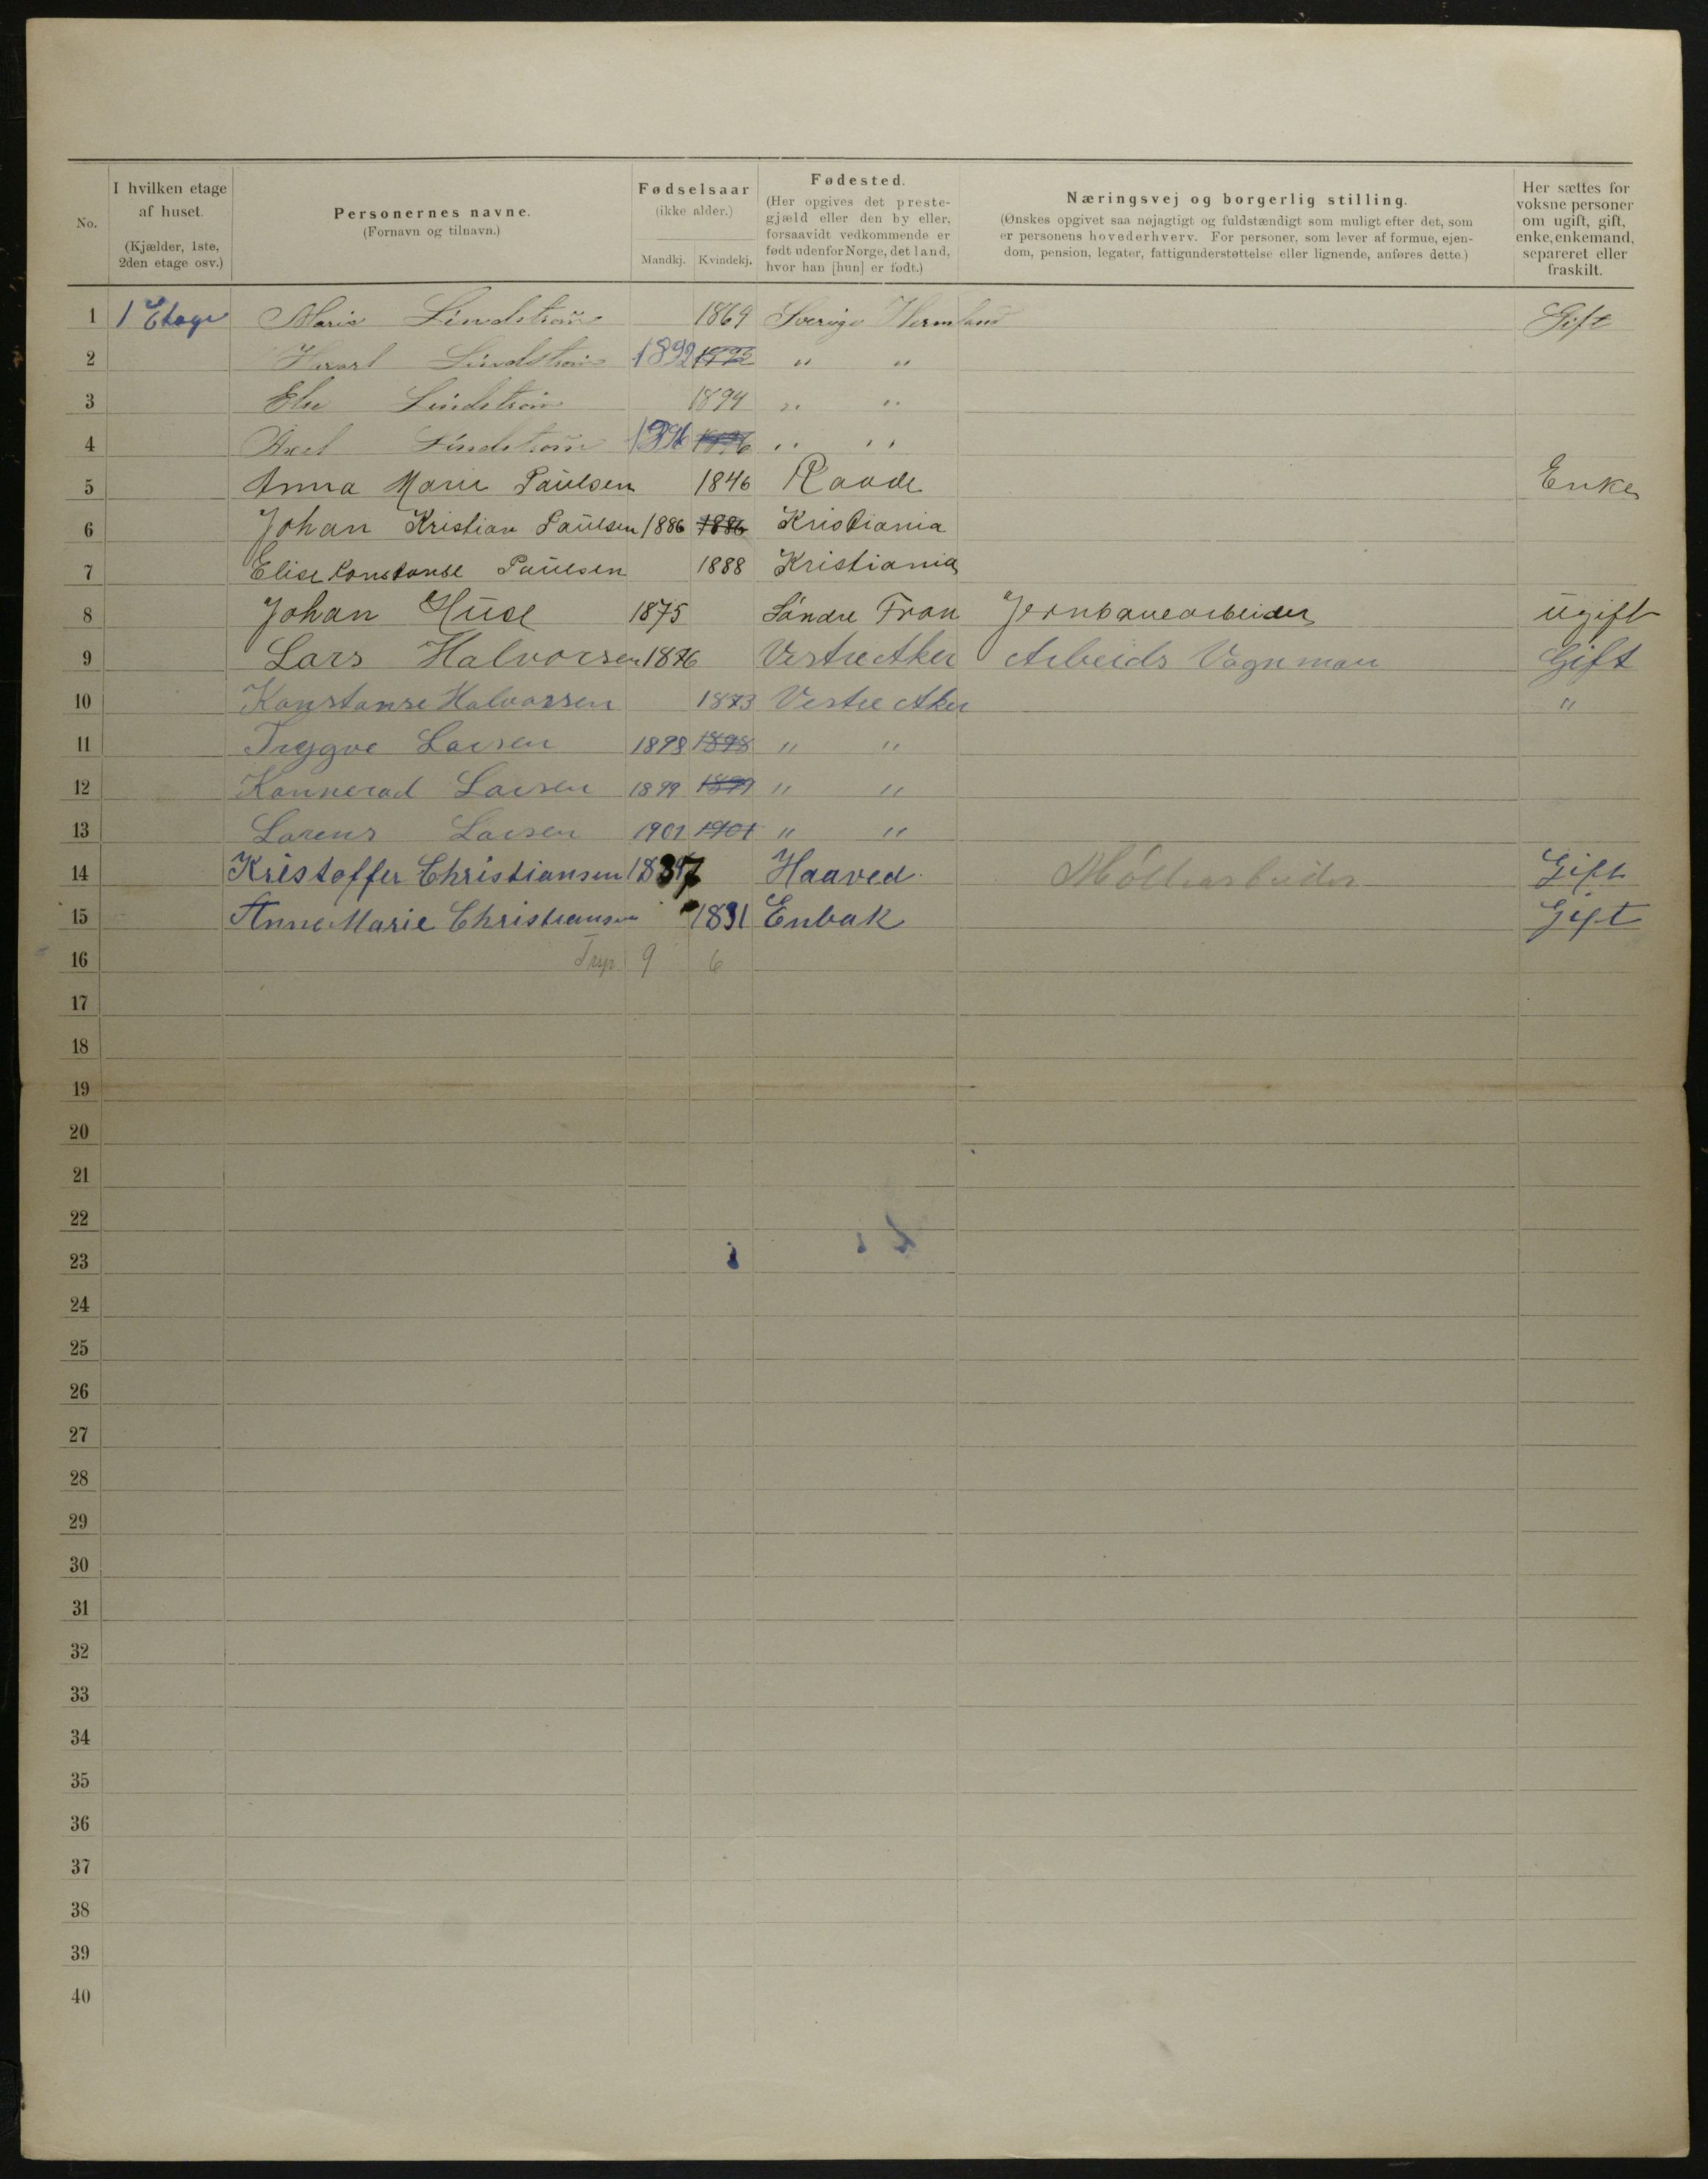 No.
I hvilken etage
af huset.
(Kjælder, 1ste,
2den etage osv.)
Personernes navne.
(Fornavn og tilnavn.)
Fødselsaar
(ikke alder.)
Mandkj. Kvindekj.
Fødested.
(Her opgives det preste-
gjæld eller den by eller,
forsaavidt vedkommende er
født udenfor Norge, det land,
hvor han [hun] er født.)
Næringsvej og borgerlig stilling.
(Ønskes opgivet saa nøjagtigt og fuldstændigt som muligt efter det, som
er personens hovederhverv. For personer, som lever af formue, ejen-
dom, pension, legater, fattigunderstøttelse eller lignende, anføres dette.)
Her sættes for
voksne personer
om ugift, gift,
enke, enkemand,
separeret eller
fraskilt.
1 1 Etage Maria Lindström 1869 Sverige Vermland Gift
2 Lindström 1892 " "
3 Else Lindström 1894 " "
4 Axel Lindström 1896 1896 " "
5 Anna Marie Paulsen 1846 Raade Enke
6 Johan Kristian Paulsen 1886 1886 Kristiania
7 Elise Konstanse Paulsen 1888 Kristiania
8 Johan Huse 1875 Söndre Fron Jernbanearbeider ugift
9 Lars Halvorsen 1876 Vestre Aker Arbeids Vognman Gift
10 Konstanse Halvorsen 1873 Vestre Aker "
11 Tryggve Larsen 1898 1898 " "
12 Konnerad Larsen 1899 1899 " "
13 Lorens Larsen 1901 1901 " "
14 Kristoffer Christiansen 1837 Haaved Möllearbeider Gift
15 Anne Marie Christiansen 1831 Enbak Gift
16 9 6
17
18
19
20
21
22
23
24
25
26
27
28
29
30
31
32
33
34
35
36
37
38
39
40